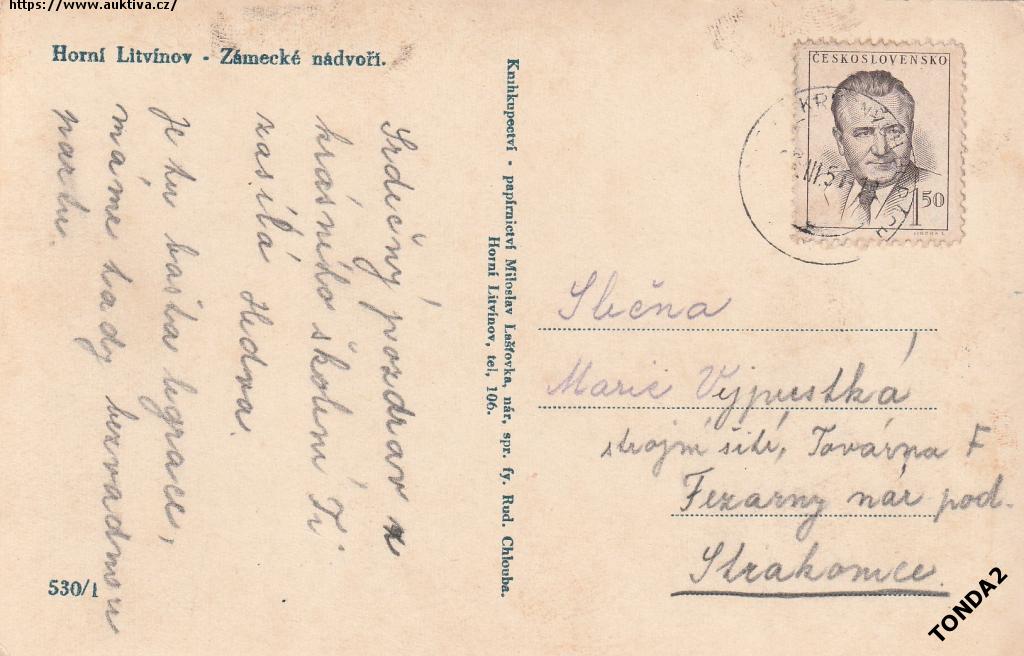 https://www.auktiva.cz/
Horní Litvínov - Zámecké nádvoří.
Srdečný pozdrav z
krásného školení Ti
zasílá Hedva.
Je tu bašta legrace,
máme tady bezvadnou
partu.
530/1
Knihkupectví - papírnictví Miloslav Lašťovka, nár. spr. fy. Rud. Chlouba.
Horní Litvínov, tel. 106.
ČESKOSLOVENSKO
1 50
III.51
Slečna
Marie Vyjpustká
strojní šití, Továrna F
Fezarny nár pod.
Strakonice.
TONDA2